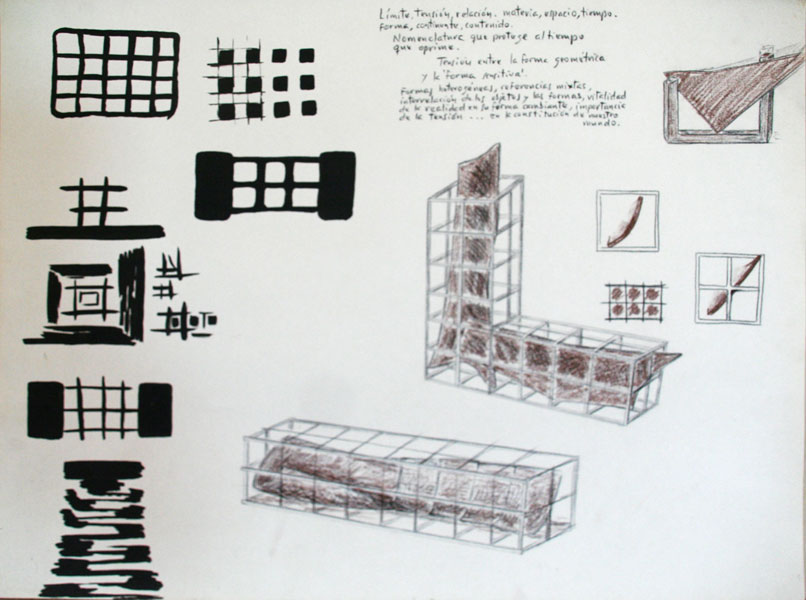 Límite, Tensión, relación. materia, espacio, tiempo.
forma, continente, contenido.
Nomenclatura que protege al tiempo
que oprime.
Tensión entre la forma geométrica
y la 'forma
Formas heterogéneas, referencias mixtas,
interrelación de los objetos y las formas, vitalidad
de la realidad en su forma cambiante, importancia
de la tensión ... en la constitución de nuestro
mundo.